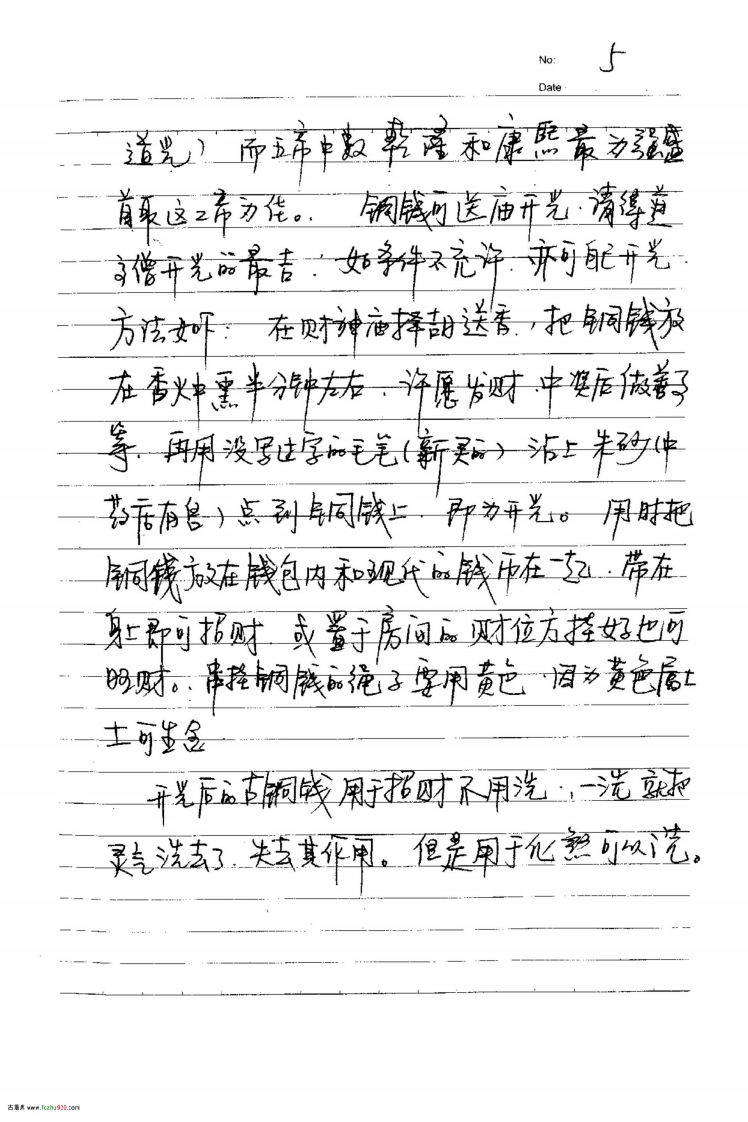 No: 5
Date
道光）而五帝中数乾隆和康熙最为强盛
首取这二帝为佳。铜钱可送庙开光.请得道
高僧开光的最吉.如条件不充许.亦可自己开光.
方法如下：在财神庙择吉日送香，把铜钱放
在香火中熏半分钟左右.许愿发财.中奖后做善事
等.再用没写过字的毛笔(新买的)沾上朱砂(中
药店有售)点到铜钱上.即为开光。用时把
铜钱放在钱包内和现代的钱币在一起.带在
身上即可招财.或置于房间的财位方挂好也可
旺财。串挂铜钱的绳子要用黄色.因为黄色属土
土可生金
开光后的古铜钱用于招财不用洗.一洗就把
灵气洗去了.失去其作用。但是用于化煞可以洗。
www.fczhu920.com